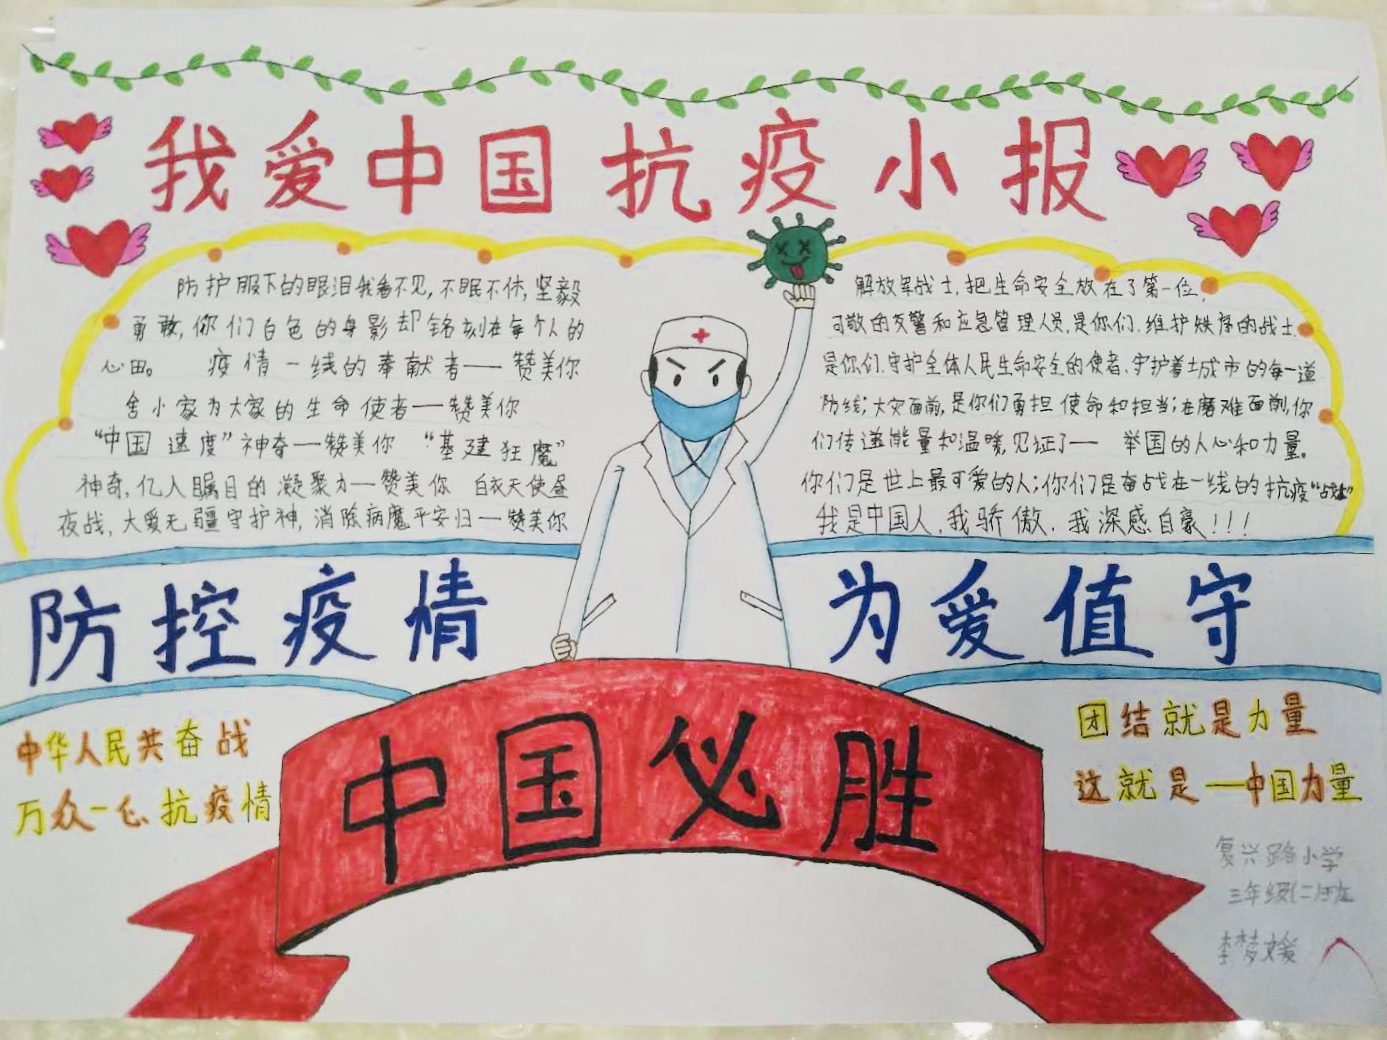 我爱中国抗疫小报
防护服下的眼泪我看不见,不眠不休,坚毅
勇敢,你们白色的身影却铭刻在每个人的
心田。 疫情一线的奉献者——赞美你
舍小家为大家的生命使者——赞美你
“中国速度”神奇——赞美你 “基建狂魔”
神奇,亿人瞩目的凝聚力——赞美你 白衣天使昼
夜战,大爱无疆守护神,消除病魔平安归——赞美你
解放军战士,把生命安全放在了第一位,
可敬的交警和应急管理人员,是你们,维护秩序的战士,
是你们,守护全体人民生命安全的使者,守护着土城市的每一道
防线;大灾面前,是你们勇担使命和担当;在磨难面前,你
们传递能量和温暖,见证了—— 举国的人心和力量。
你们是世上最可爱的人;你们是奋战在一线的抗疫“战士”
我是中国人,我骄傲,我深感自豪!!!
防控疫情
为爱值守
中国必胜
中华人民共奋战
万众一心抗疫情
团结就是力量
这就是——中国力量
复兴路小学
三年级(二)班
李梦媛